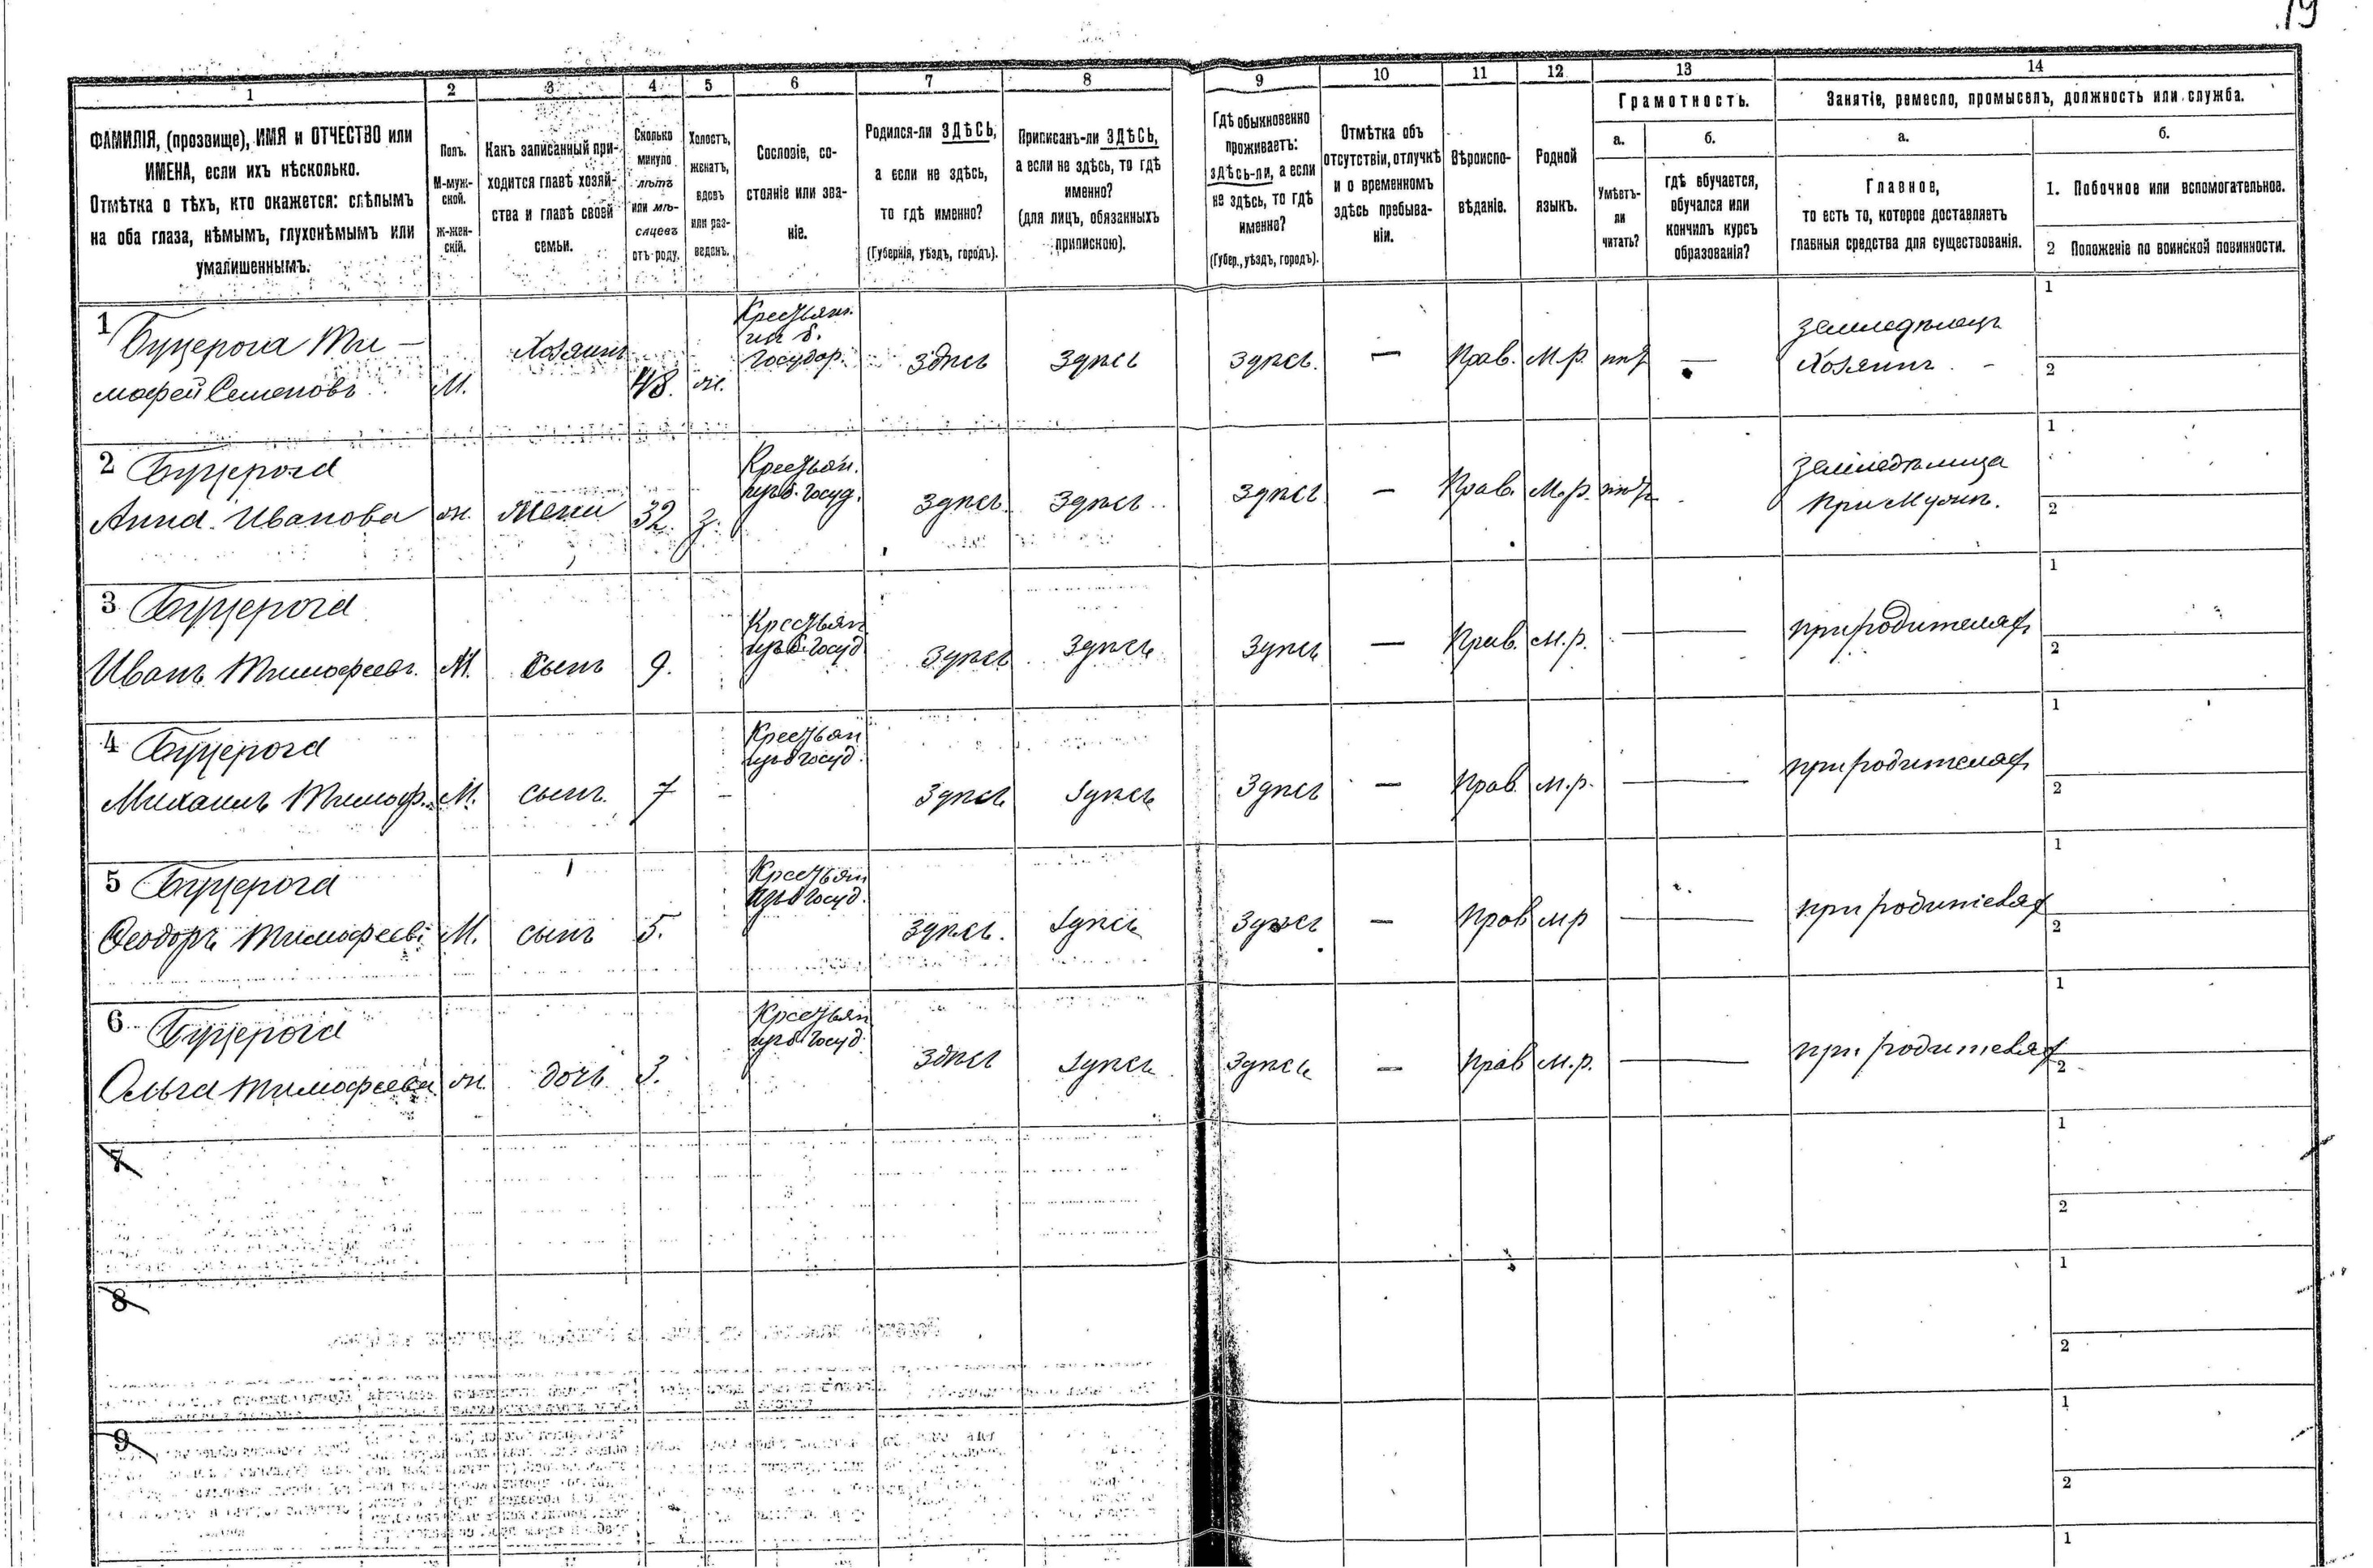 19
1 2 3 4 5 6 7 8 9 10 11 12 13 14
ФАМИЛІЯ, (прозвище), ИМЯ и ОТЧЕСТВО или
ИМЕНА, если ихъ нѣсколько.
Отмѣтка о тѣхъ, кто окажется: слѣпымъ
на оба глаза, нѣмымъ, глухонѣмымъ или
умалишеннымъ.
Полъ.
М-муж-
ской.
Ж-жен-
скій.
Какъ записанный при-
ходится главѣ хозяй-
ства и главѣ своей
семьи.
Сколько
минуло
лѣтъ
или мѣ-
сяцевъ
отъ роду.
Холостъ,
женатъ,
вдовъ
или раз-
веденъ.
Сословіе, со-
стояніе или зва-
ніе.
Родился-ли ЗДѢСЬ,
а если не здѣсь,
то гдѣ именно?
(Губернія, уѣздъ, городъ).
Приписанъ-ли ЗДѢСЬ,
а если не здѣсь, то гдѣ
именно?
(для лицъ, обязанныхъ
припискою).
Гдѣ обыкновенно
проживаетъ:
здѣсь-ли, а если
не здѣсь, то гдѣ
именно?
(Губер., уѣздъ, городъ).
Отмѣтка объ
отсутствіи, отлучкѣ
и о временномъ
здѣсь пребыва-
ніи.
Вѣроиспо-
вѣданіе.
Родной
языкъ.
Грамотность.
а.
Умѣетъ-
ли
читать?
б.
гдѣ обучается,
обучался или
кончилъ курсъ
образованія?
Занятіе, ремесло, промыселъ, должность или служба.
а.
Главное,
то есть то, которое доставляетъ
главныя средства для существованія.
б.
1. Побочное или вспомогательное.
2 Положеніе по воинской повинности.
1 Буцерога Ти-
мофей Семеновъ М. Хозяинъ 48. ж.
Крестьян.
из б.
государ. здѣсь здѣсь здѣсь. — Прав. М.р. нѣт —
земледѣлецъ
Хозяинъ. - 1 2
2 Буцерога
Анна Иванова ж. жена 32. з.
Крестьян.
изъ б. госуд. здѣсь здѣсь здѣсь — Прав. М.р. нѣт
земледѣлица
При Мужѣ. 1 2
3 Буцерога
Иванъ Тимофеевъ. М. сынъ 9.
Крестьян
изъ б. госуд здѣсь здѣсь здѣсь — Прав. М.р. — при родителях 1 2
4 Буцерога
Михаилъ Тимоф. М. сынъ. 7 -
Крестьян
изъ б госуд. здѣсь здѣсь здѣсь — Прав. М.р. — при родителях 1 2
5 Буцерога
Ѳеодоръ Тимофеевъ М. сынъ 5.
Крестьян
изъ б госуд. здѣсь. здѣсь здѣсь — Прав М.р — при родителях 1 2
6 Буцерога
Ольга Тимофеева ж. дочь 3.
Крестьян
изъ б госуд. здѣсь здѣсь здѣсь — Прав М.р. — при родителях 1 2
7 1 2
8 1 2
9 1 2
1